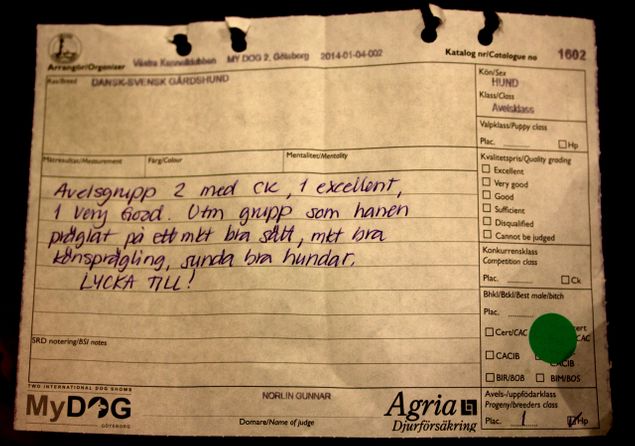 Arrangör/Organizer Västra Kennelklubben MY DOG 2, Göteborg 2014-01-04-002 Katalog nr/Catalogue no 1602
Ras/Breed DANSK-SVENSK GÅRDSHUND
Kön/Sex
HUND
Klass/Class
Avelsklass
Valpklass/Puppy class
Plac. Hp
Mätresultat/Measurement Färg/Colour Mentalitet/Mentality
Kvalitetspris/Quality grading
Excellent
Very good
Good
Sufficient
Disqualified
Cannot be judged
Avelsgrupp 2 med CK, 1 excellent,
1 Very Good. Utm grupp som hanen
präglat på ett mkt bra sätt, mkt bra
könsprägling, sunda bra hundar.
LYCKA TILL!
Konkurrensklass
Competition class
Plac. Ck
Bhkl/Btkl/Best male/bitch
Plac.
Cert/CAC
CACIB
BIR/BOB BIM/BOS
SRD notering/BSI notes
TWO INTERNATIONAL DOG SHOWS
MyDOG
GÖTEBORG
NORLIN GUNNAR
Domare/Name of judge
Agria
Djurförsäkring
Avels-/uppfödarklass
Progeny/breeders class
Plac. 1 Hp